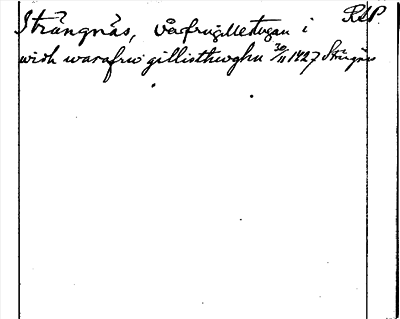 Strängnäs, Vårfrugillestugan i RAP.
widh warafrw gillisthwghu 30/11 1427 Strängnäs